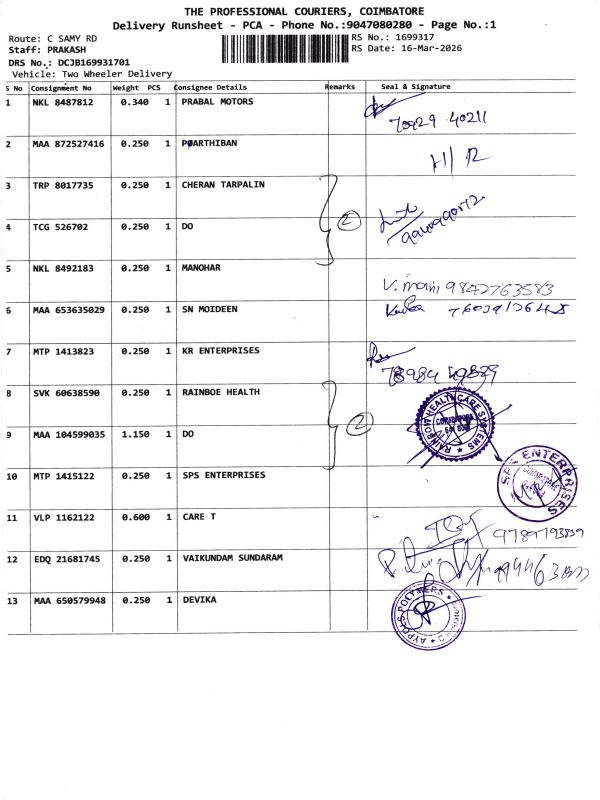 THE PROFESSIONAL COURIERS, COIMBATORE
Delivery Runsheet - PCA - Phone No.:9047080280 - Page No.:1
Route: C SAMY RD RS No.: 1699317
Staff: PRAKASH RS Date: 16-Mar-2026
DRS No.: DCJB169931701
Vehicle: Two Wheeler Delivery
S No Consignment No Weight PCS Consignee Details Remarks Seal & Signature
1 NKL 8487812 0.340 1 PRABAL MOTORS
70929 40211
2 MAA 872527416 0.250 1 PARTHIBAN
H/R
3 TRP 8017735 0.250 1 CHERAN TARPALIN
2
4 TCG 526702 0.250 1 DO
5 NKL 8492183 0.250 1 MANOHAR
V. mani 9842763583
6 MAA 653635029 0.250 1 SN MOIDEEN
7 MTP 1413823 0.250 1 KR ENTERPRISES
8 SVK 60638590 0.250 1 RAINBOE HEALTH
RAINBOW HEALTH CARE SYSTEMS
COIMBATORE
2
9 MAA 104599035 1.150 1 DO
10 MTP 1415122 0.250 1 SPS ENTERPRISES
SPS ENTERPRISES
COIMBATORE
11 VLP 1162122 0.600 1 CARE T
9789793839
12 EDQ 21681745 0.250 1 VAIKUNDAM SUNDARAM
13 MAA 650579948 0.250 1 DEVIKA
AYPOLS POLYMERS